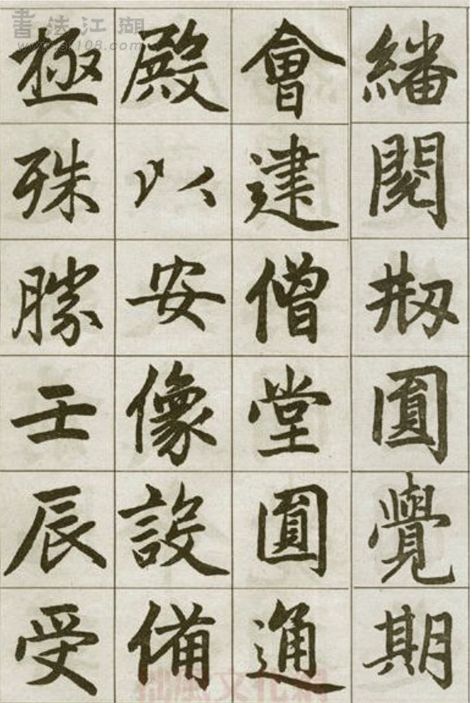 繙閱刱圓覺期
會建僧堂圓通
殿以安像設備
極殊勝壬辰受
書法江湖
拙風文化網